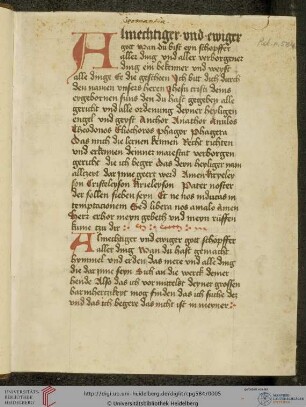 Geomantia
Almechtiger vnd ewiger
got wan du bist eyn schopffer
aller ding vnd aller verborgener
ding ein bekenner vnd weyst
alle dinge Er die geschien Ich bit dich durch
den namen vnsers herren Jhesu cristi deins
eygebornen suns den du hast gegeben alle
gericht vnd alle ordenung deyner heyliger
engel vnd geyst Anchor Anathor Anulos
Theodonos Eliochoros phagor Phagera
das mich die lernen kennen Recht richten
vnd erkennen deiner maiestat verborgen
gericht die ich beger das deyn heyliger nam
allezeit dar jnne geert werd Amen kyryeley
son Cristeleyson kyrieleyson Pater noster
der sollen sieben seyn Et ne nos inducas in
temptacionem Sed libera nos a malo Amen
Herr erhor meyn gebeth vnd meyn rüffen
kume czu dir
Almechtiger vnd ewiger got schopffer
aller ding wan du hast gemacht
hymmel vnd erden das mere vnd alle ding
die dar jnne seyn Sich an die werck deiner
hende Also das ich vor mittelst deyner grossen
barmherczikeyt mog finden das ich suche
vnd das ich begere das nicht ist in meyner
UNIVERSITÄTS-
BIBLIOTHEK
HEIDELBERG
http://digi.ub.uni-heidelberg.de/diglit/cpg584/0005
© Universitätsbibliothek Heidelberg